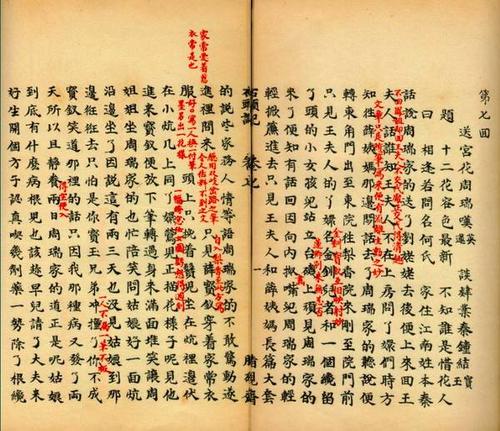 第七回
送宫花周瑞嘆英 談肄業秦鍾結寶玉
題 十二花容色最新 不知誰是惜花人
曰 相逢若問名何氏 家住江南姓本秦
話說周瑞家的送了劉姥姥去後便上來回王
夫人話誰知王夫人不在上房問丫嬛們時方
知往薛姨媽那邊閒話去了周瑞家的聽說便
轉東角門出至東院往梨香院來剛至院門前
只見王夫人的丫嬛名金釧兒者和一個纔留
了頭的小女孩兒站立台磯上頑周瑞家的
來了便知有話回因向内撇嘴兒周瑞家的輕
輕掀簾進去只見王夫人和薛姨媽長篇大套
石頭記 卷七 一 脂硯齋
的說些家務人情等語周瑞家的不敢驚動遂
進裡間來 只見薛寶釵穿着家常衣
家常愛着舊
衣常是也
服 頭上只挽着纂兒坐在炕裡邊伏
在小炕几上同丫嬛鶯兒正描花樣子呢見他
進來寶釵便放下筆轉過身來滿面堆笑讓周
姐姐坐周瑞家的也忙陪笑問姑娘好一面炕
沿邊坐了因說這有兩三天也沒見姑娘到那
邊逛逛去只怕是你寶玉兄弟冲撞了你不成
寶釵笑道那裡的話只因我那種病又發了兩
天所以且靜養兩日周瑞家的道正是呢姑娘
到底有什麼病根兒也該趁早兒請了大夫來
好生開個方子認真吃幾劑藥一勢除了根纔